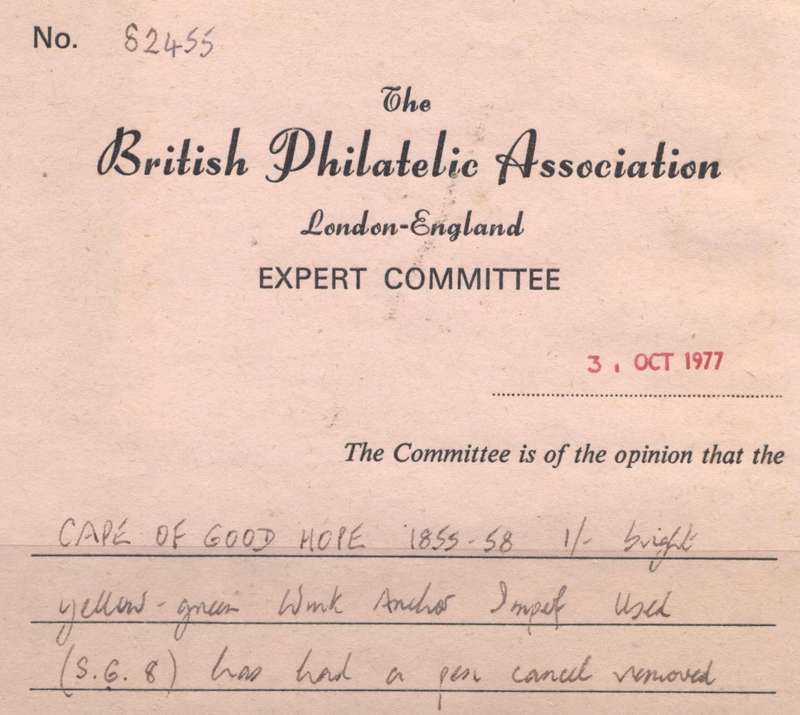 No. 82455
The
British Philatelic Association
London-England
EXPERT COMMITTEE
3 1 OCT 1977
The Committee is of the opinion that the
CAPE OF GOOD HOPE 1855-58 1/- bright
yellow-green Wmk Anchor Imperf Used
(S.G. 8) has had a pen cancel removed